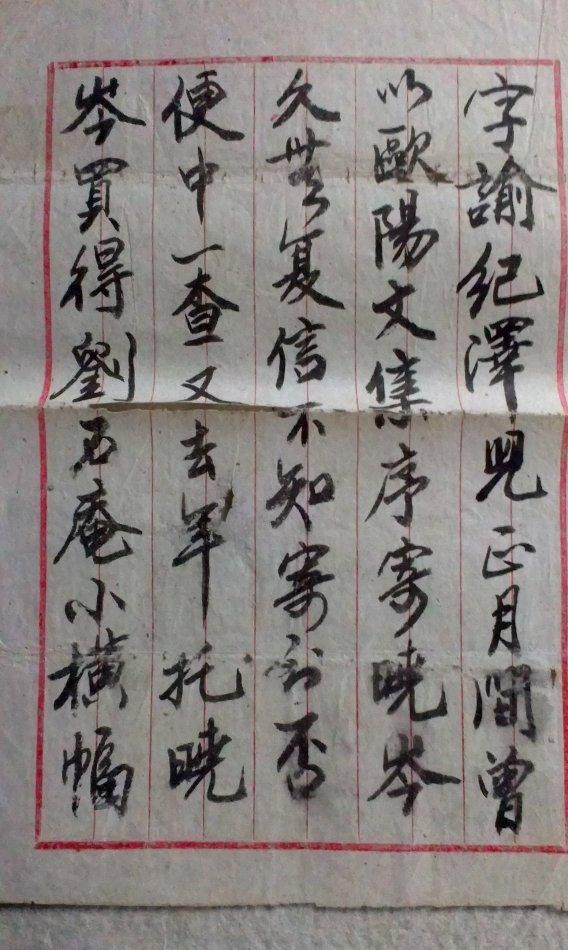 字諭紀澤兒正月間曾
以歐陽文集序寄曉岑
久無复信不知寄到否
便中一查又去年托曉
岑買得劉石庵小橫幅